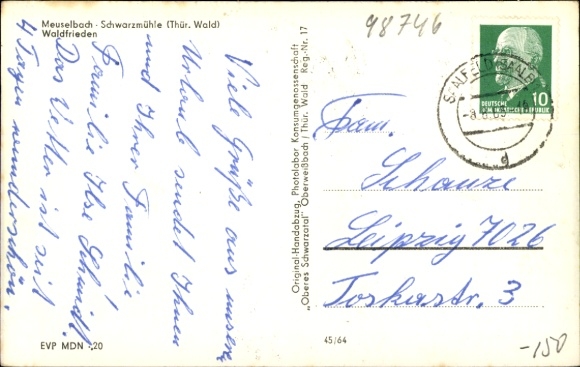 Meuselbach - Schwarzmühle (Thür. Wald)
Waldfrieden
98746
Viele Grüße aus unserem
Urlaub sendet Ihnen
und Ihrer Familie
Familie Ilse Schmidt.
Das Wetter ist seit
4 Tagen wunderschön.
Original-Handabzug, Photolabor Konsumgenossenschaft
„Oberes Schwarzatal" Oberweißbach / Thür. Wald Reg.-Nr. 17
SAALFELD (SAALE)
d
DEUTSCHE
DEMOKRATISCHE REPUBLIK
10
Fam.
Schanze
Leipzig 7026
Toskastr. 3
EVP MDN -,20
45/64
-150